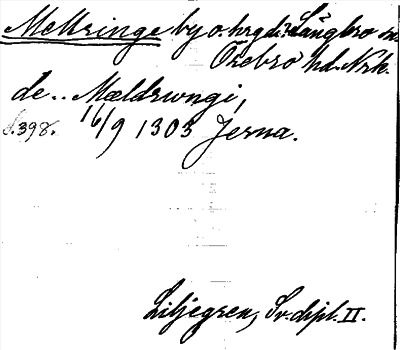 Mellringe by o. hrgd i Långbro sn
Örebro hd. Nrk.
de.. Mældrwngi,
16/9 1303 Jerna.
s. 398.
Liljegren, Sv. dipl. II.